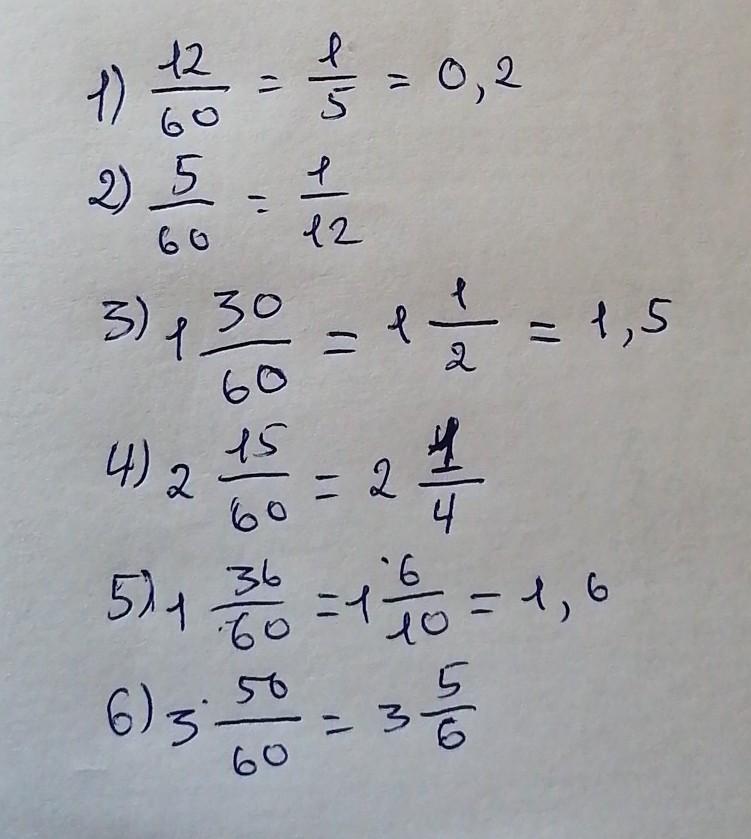 1) 12/60 = 1/5 = 0,2
2) 5/60 = 1/12
3) 1 30/60 = 1 1/2 = 1,5
4) 2 15/60 = 2 1/4
5) 1 36/60 = 1 6/10 = 1,6
6) 3 50/60 = 3 5/6